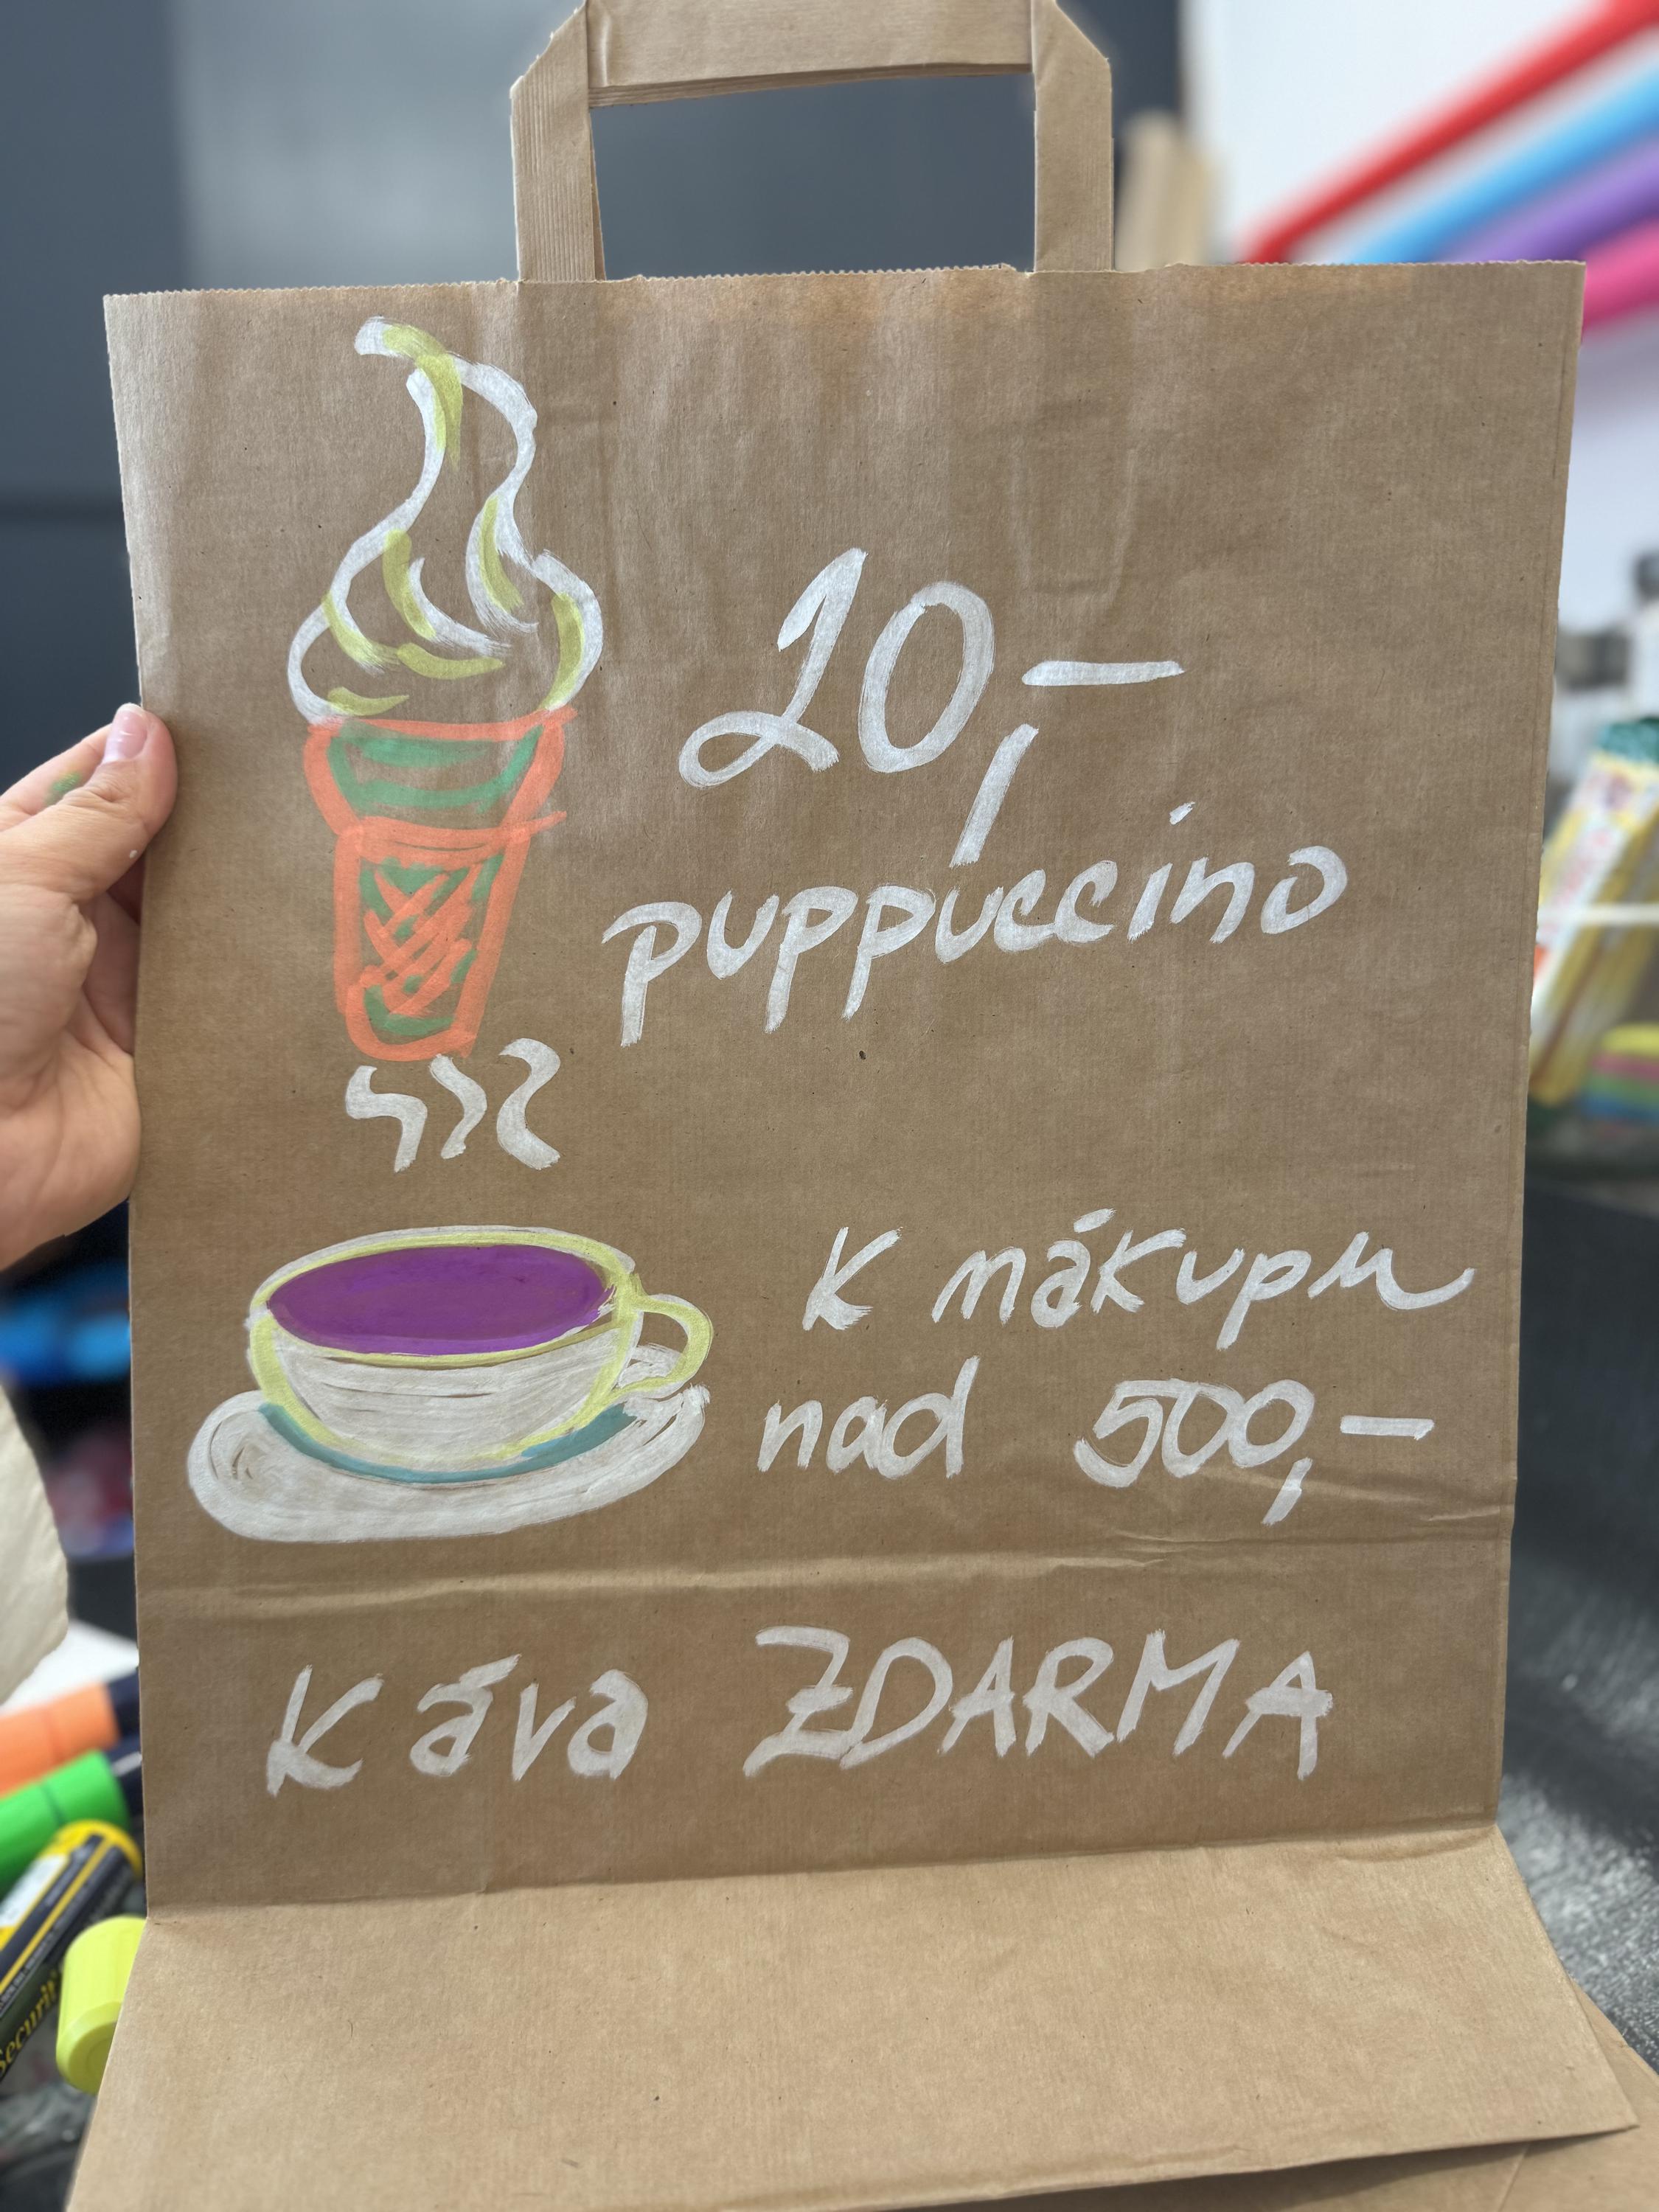 20,-
puppuccino
K nákupu
nad 500,-
Káva ZDARMA